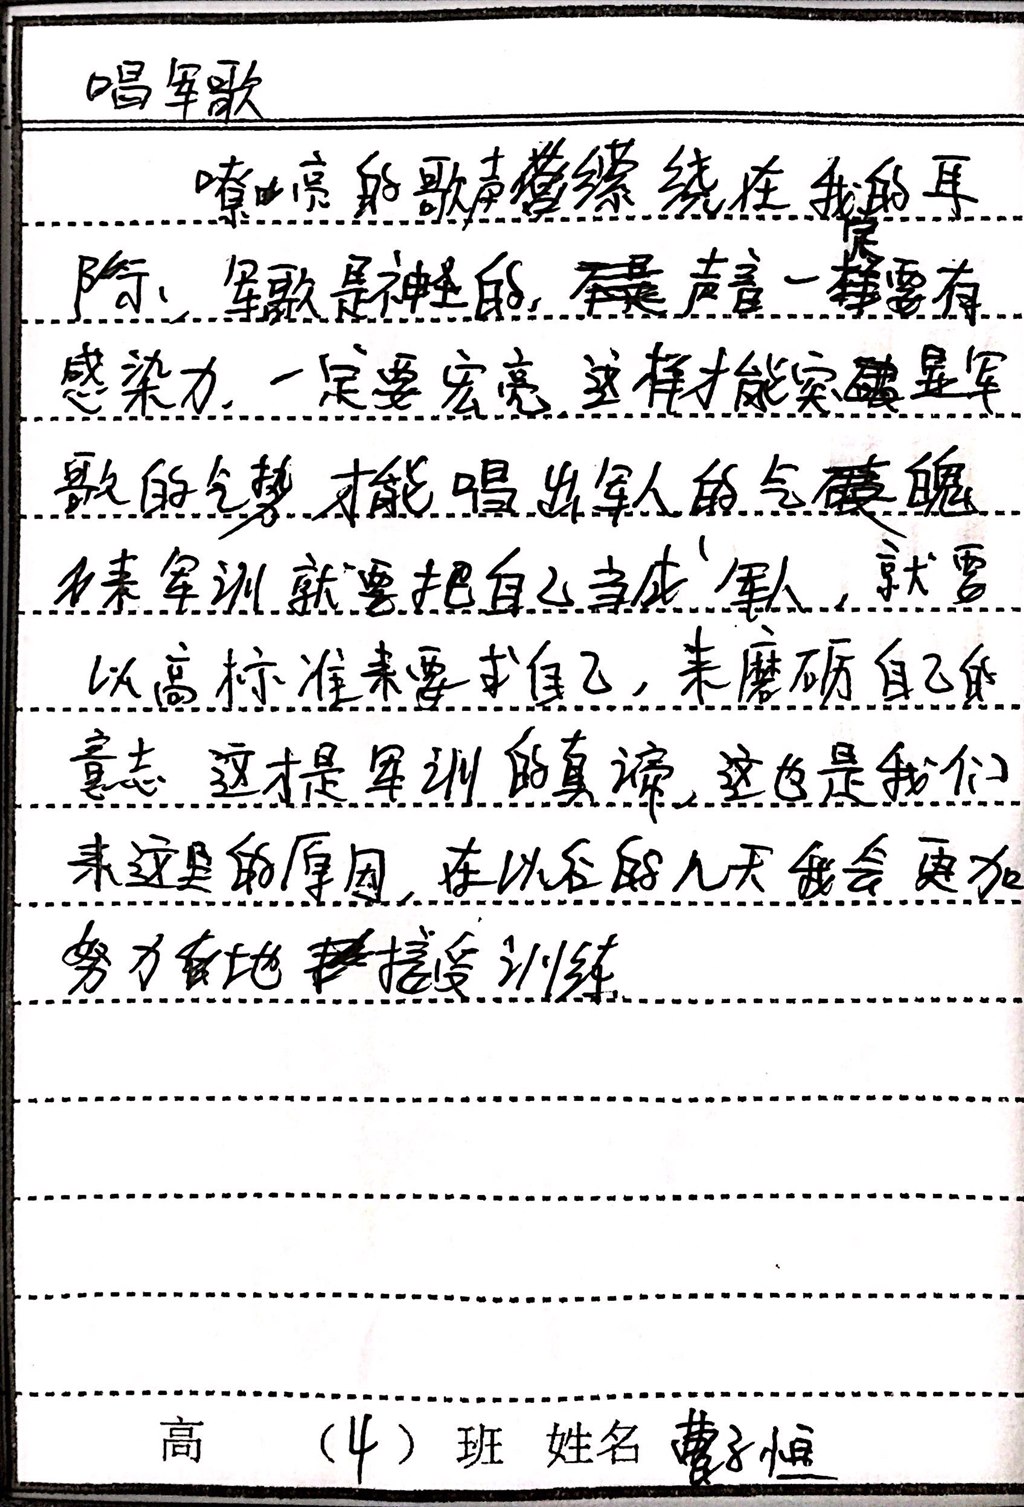 唱军歌
嘹亮的歌声萦绕在我的耳
际、军歌是神圣的,声音一定要有
感染力、一定要宏亮、这样才能突显军
歌的气势 才能唱出军人的气魄
来军训就要把自己当成军人,就要
以高标准来要求自己,来磨砺自己的
意志 这才是军训的真谛、这也是我们
来这里的原因、在以后的几天我会更加
努力在地接受训练
高 (4)班 姓名 曹子恒